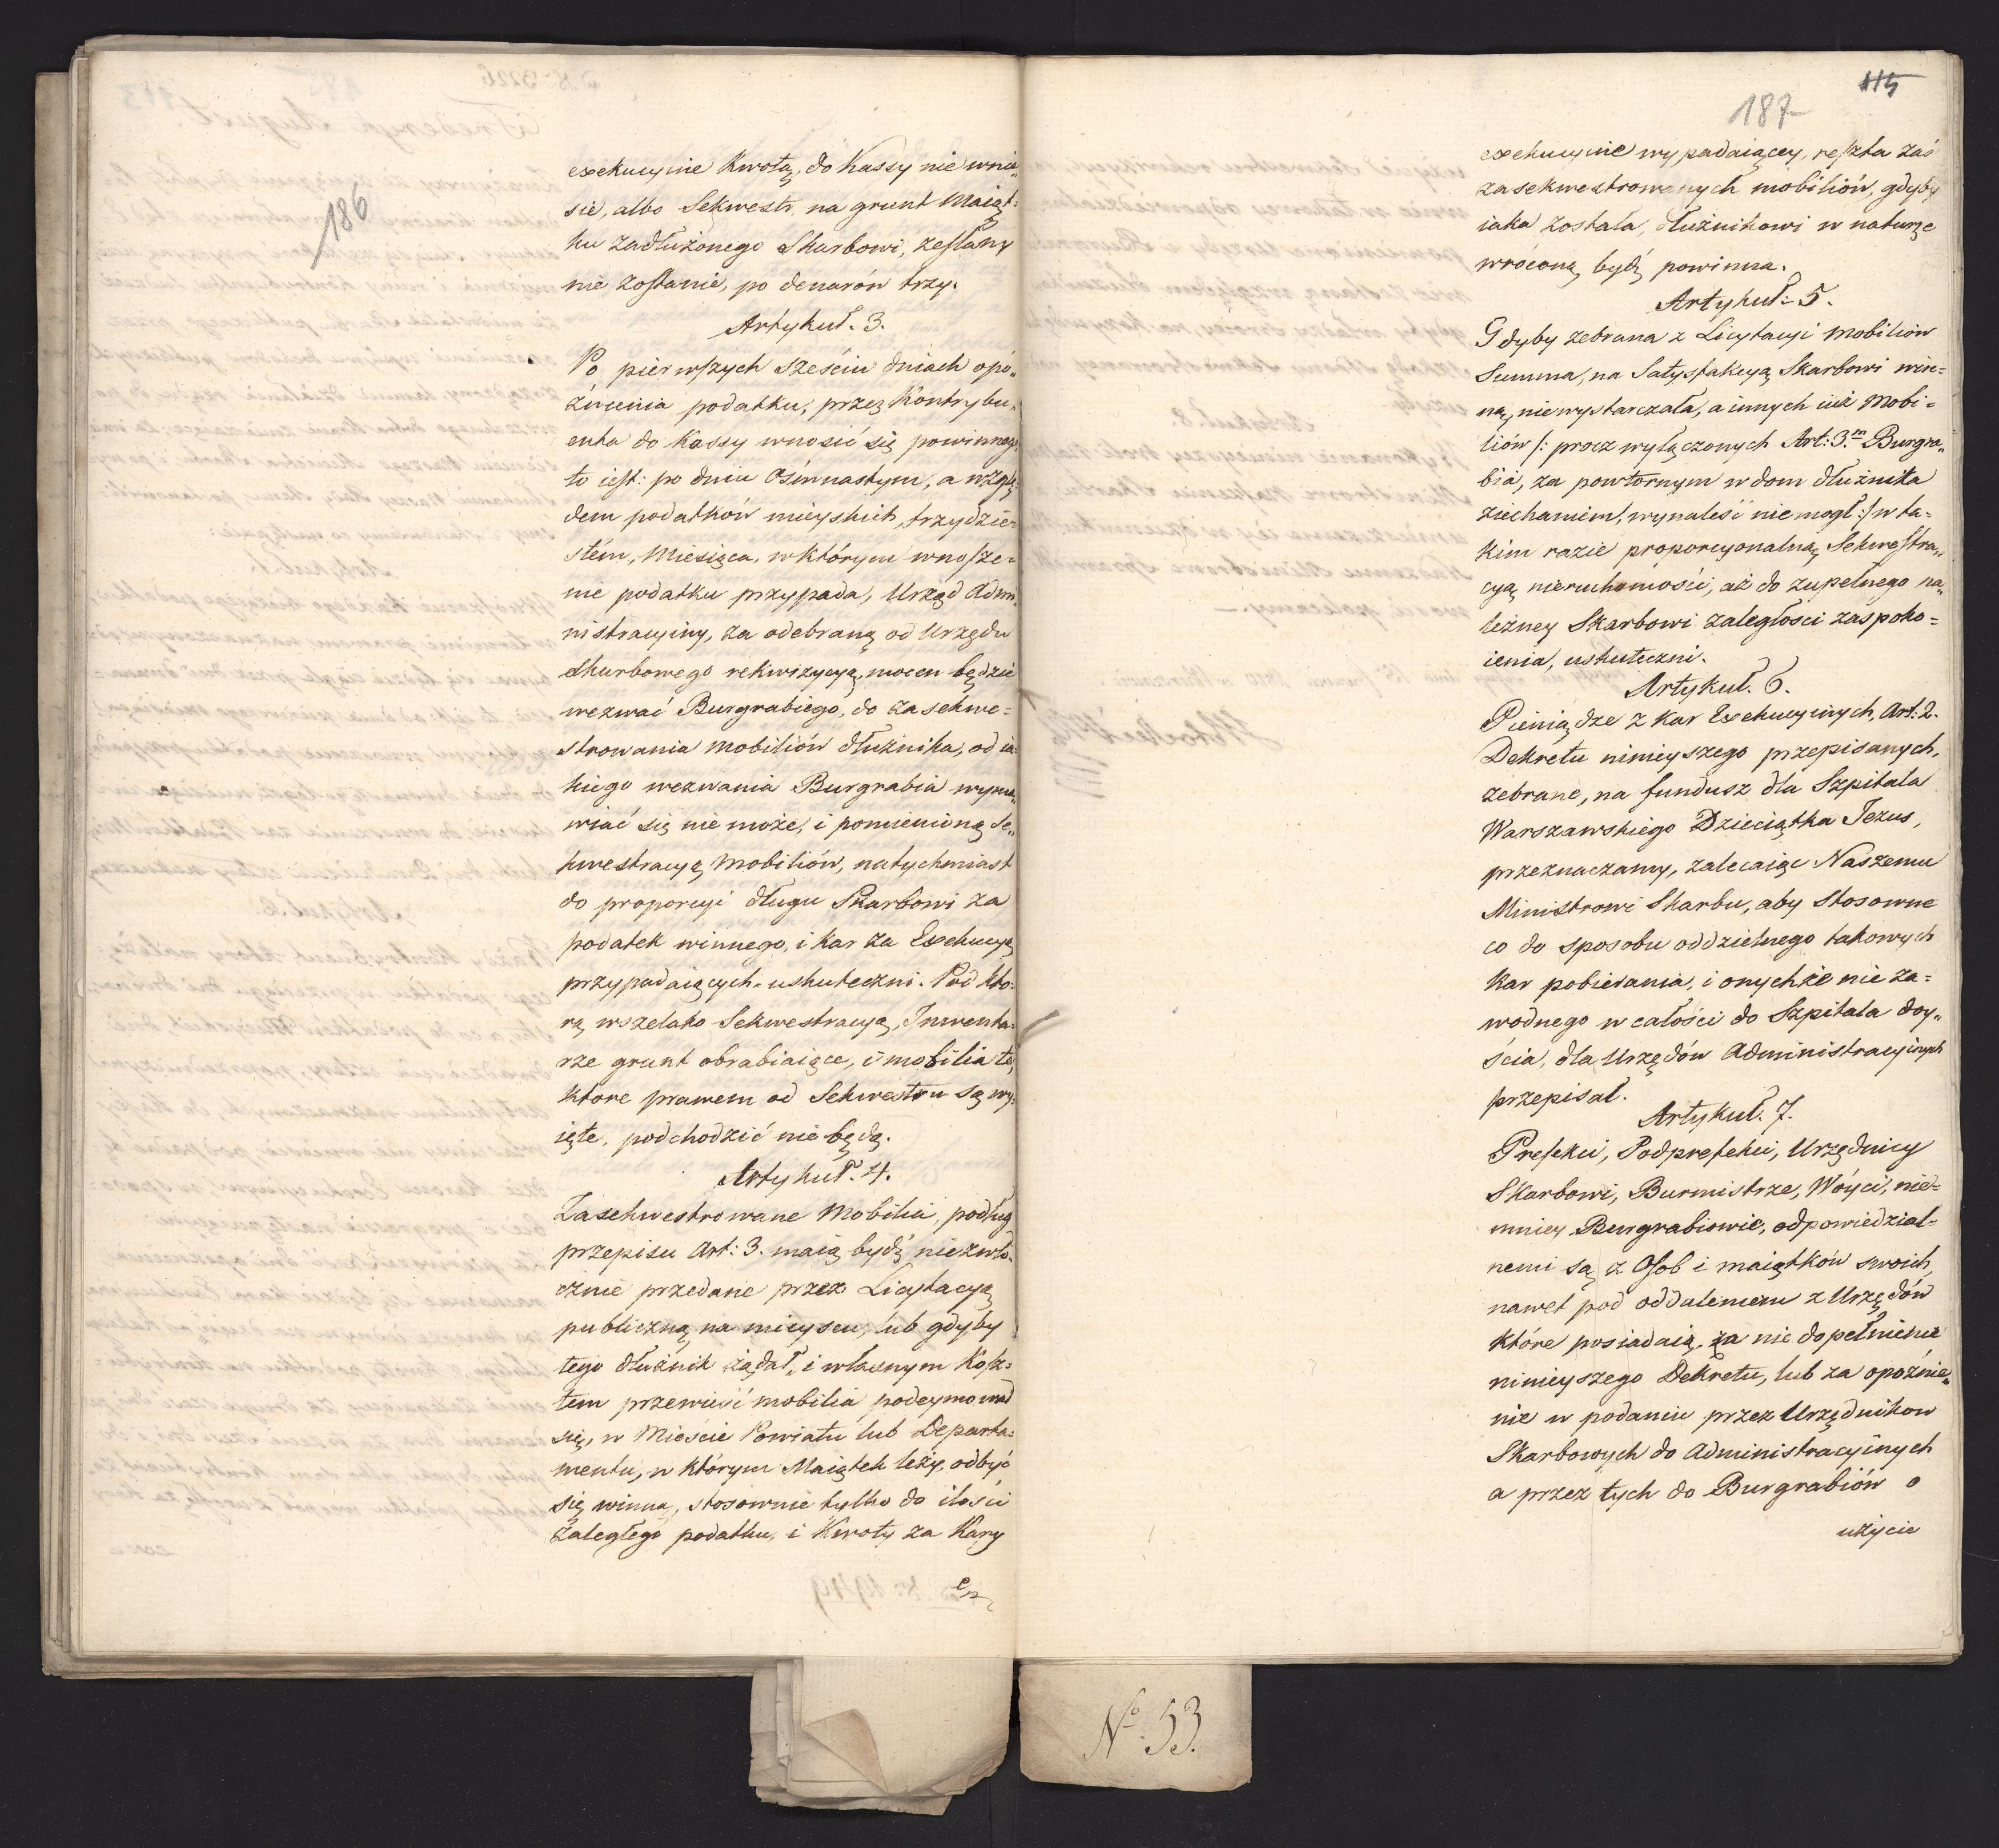 186
exekucyine Kwotą, do Kassy nie wnie„
sie, albo Sekwestr na grunt Maiąt=
ku zadłużonego Skarbowi, zesłany
nie zostanie, po denarów trzy.
Artykuł. 3.
Po pierwszych sześciu dniach opó„
źnienia podatku, przez Kontrybu„
enta do Kassy wnosić się powinnego
to iest: po dniu Osimnastym, a wzglę„
dem podatków mieyskich, trzydzie„
stem, Miesiąca, w którym wnosze=
nie podatku przypada, Urząd Admi„
nistracyiny, za odebraną od Urzędu
Skarbowego rekwizycyą, mocen będzie
wezwać Burgrabiego, do zasekwe=
strowania mobiliów dłużnika, od ia=
kiego wezwania Burgrabia wyma„
wiać się nie może, i pomienioną Se„
kwestracyę Mobiliów, natychmiast
do proporcyi długu Skarbowi za
podatek winnego, i kar za Exekucyą
przypadaiących uskuteczni. Pod któ=
rą wszelako Sekwestracyą, Inwenta=
rze grunt obrabiaiące, i mobilia te,
ktore prawem od Sekwestru są wy=
ięte, podchodzić nie będą.
Artykuł. 4.
Zasekwestrowane Mobilia, podług
przepisu Art: 3. maią bydź niezwło„
cznie przedane przez Licytacyą
publiczną na mieyscu, lub gdyby
tego dłużnik żądał, i własnym Kosz=
tem przewieść mobilia podeymował
się, w Mieście Powiatu lub Departa=
mentu, w którym Maiątek leży, odbyć
się winna, stosownie tylko do ilości
zaległego podatku, i Kwoty za Kary
115
187
exekucyine wypadaiącey, reszta zaś
zasekwestrowanych mobiliów, gdyby
iaka została, dłużnikowi w naturze
wrócona bydź powinna.
Artykuł. 5.
Gdyby zebrana z Licytacyi Mobiliów
Summa, na Satysfakcyą Skarbowi win=
ną, niewystarczała, a innych iuż Mobi=
liów /: procz wyłączonych Art: 3.m Burgra„
bia, za powtornym w dom dłużnika
ziechaniem, wynaleść nie mogł :/ w ta=
kim razie proporcyonalną Sekwestra„
cyą nieruchomości, aż do zupełnego na„
leżney Skarbowi zaległości zaspoko=
ienia, uskuteczni.
Artykuł. 6.
Pieniądze z kar Exekucyinych, Art: 2.
Dekretu ninieyszego przepisanych,
zebrane, na fundusz dla Szpitala
Warszawskiego Dzieciątka Jezus,
przeznaczamy, zalecaiąc Naszemu
Ministrowi Skarbu, aby Stosowne
co do sposobu oddzielnego takowych
kar pobierania, i onychże nie za=
wodnego w całości do Szpitala doy„
ścia, dla Urzędów Administracyinych
przepisał.
Artykuł. 7.
Prefekci, Podprefekci, Urzędnicy
Skarbowi, Burmistrze, Wóyci, nie=
mniey Burgrabiowie, odpowiedzial=
nemi są z Osob i maiątków swoich,
nawet pod oddaleniem z Urzędów
które posiadaią, za nie dopełnienie
ninieyszego Dekretu, lub za opoźnie„
nie w podaniu przez Urzędnikow
Skarbowych do Administracyinych
a przez tych do Burgrabiów o
użycie
No. 53.